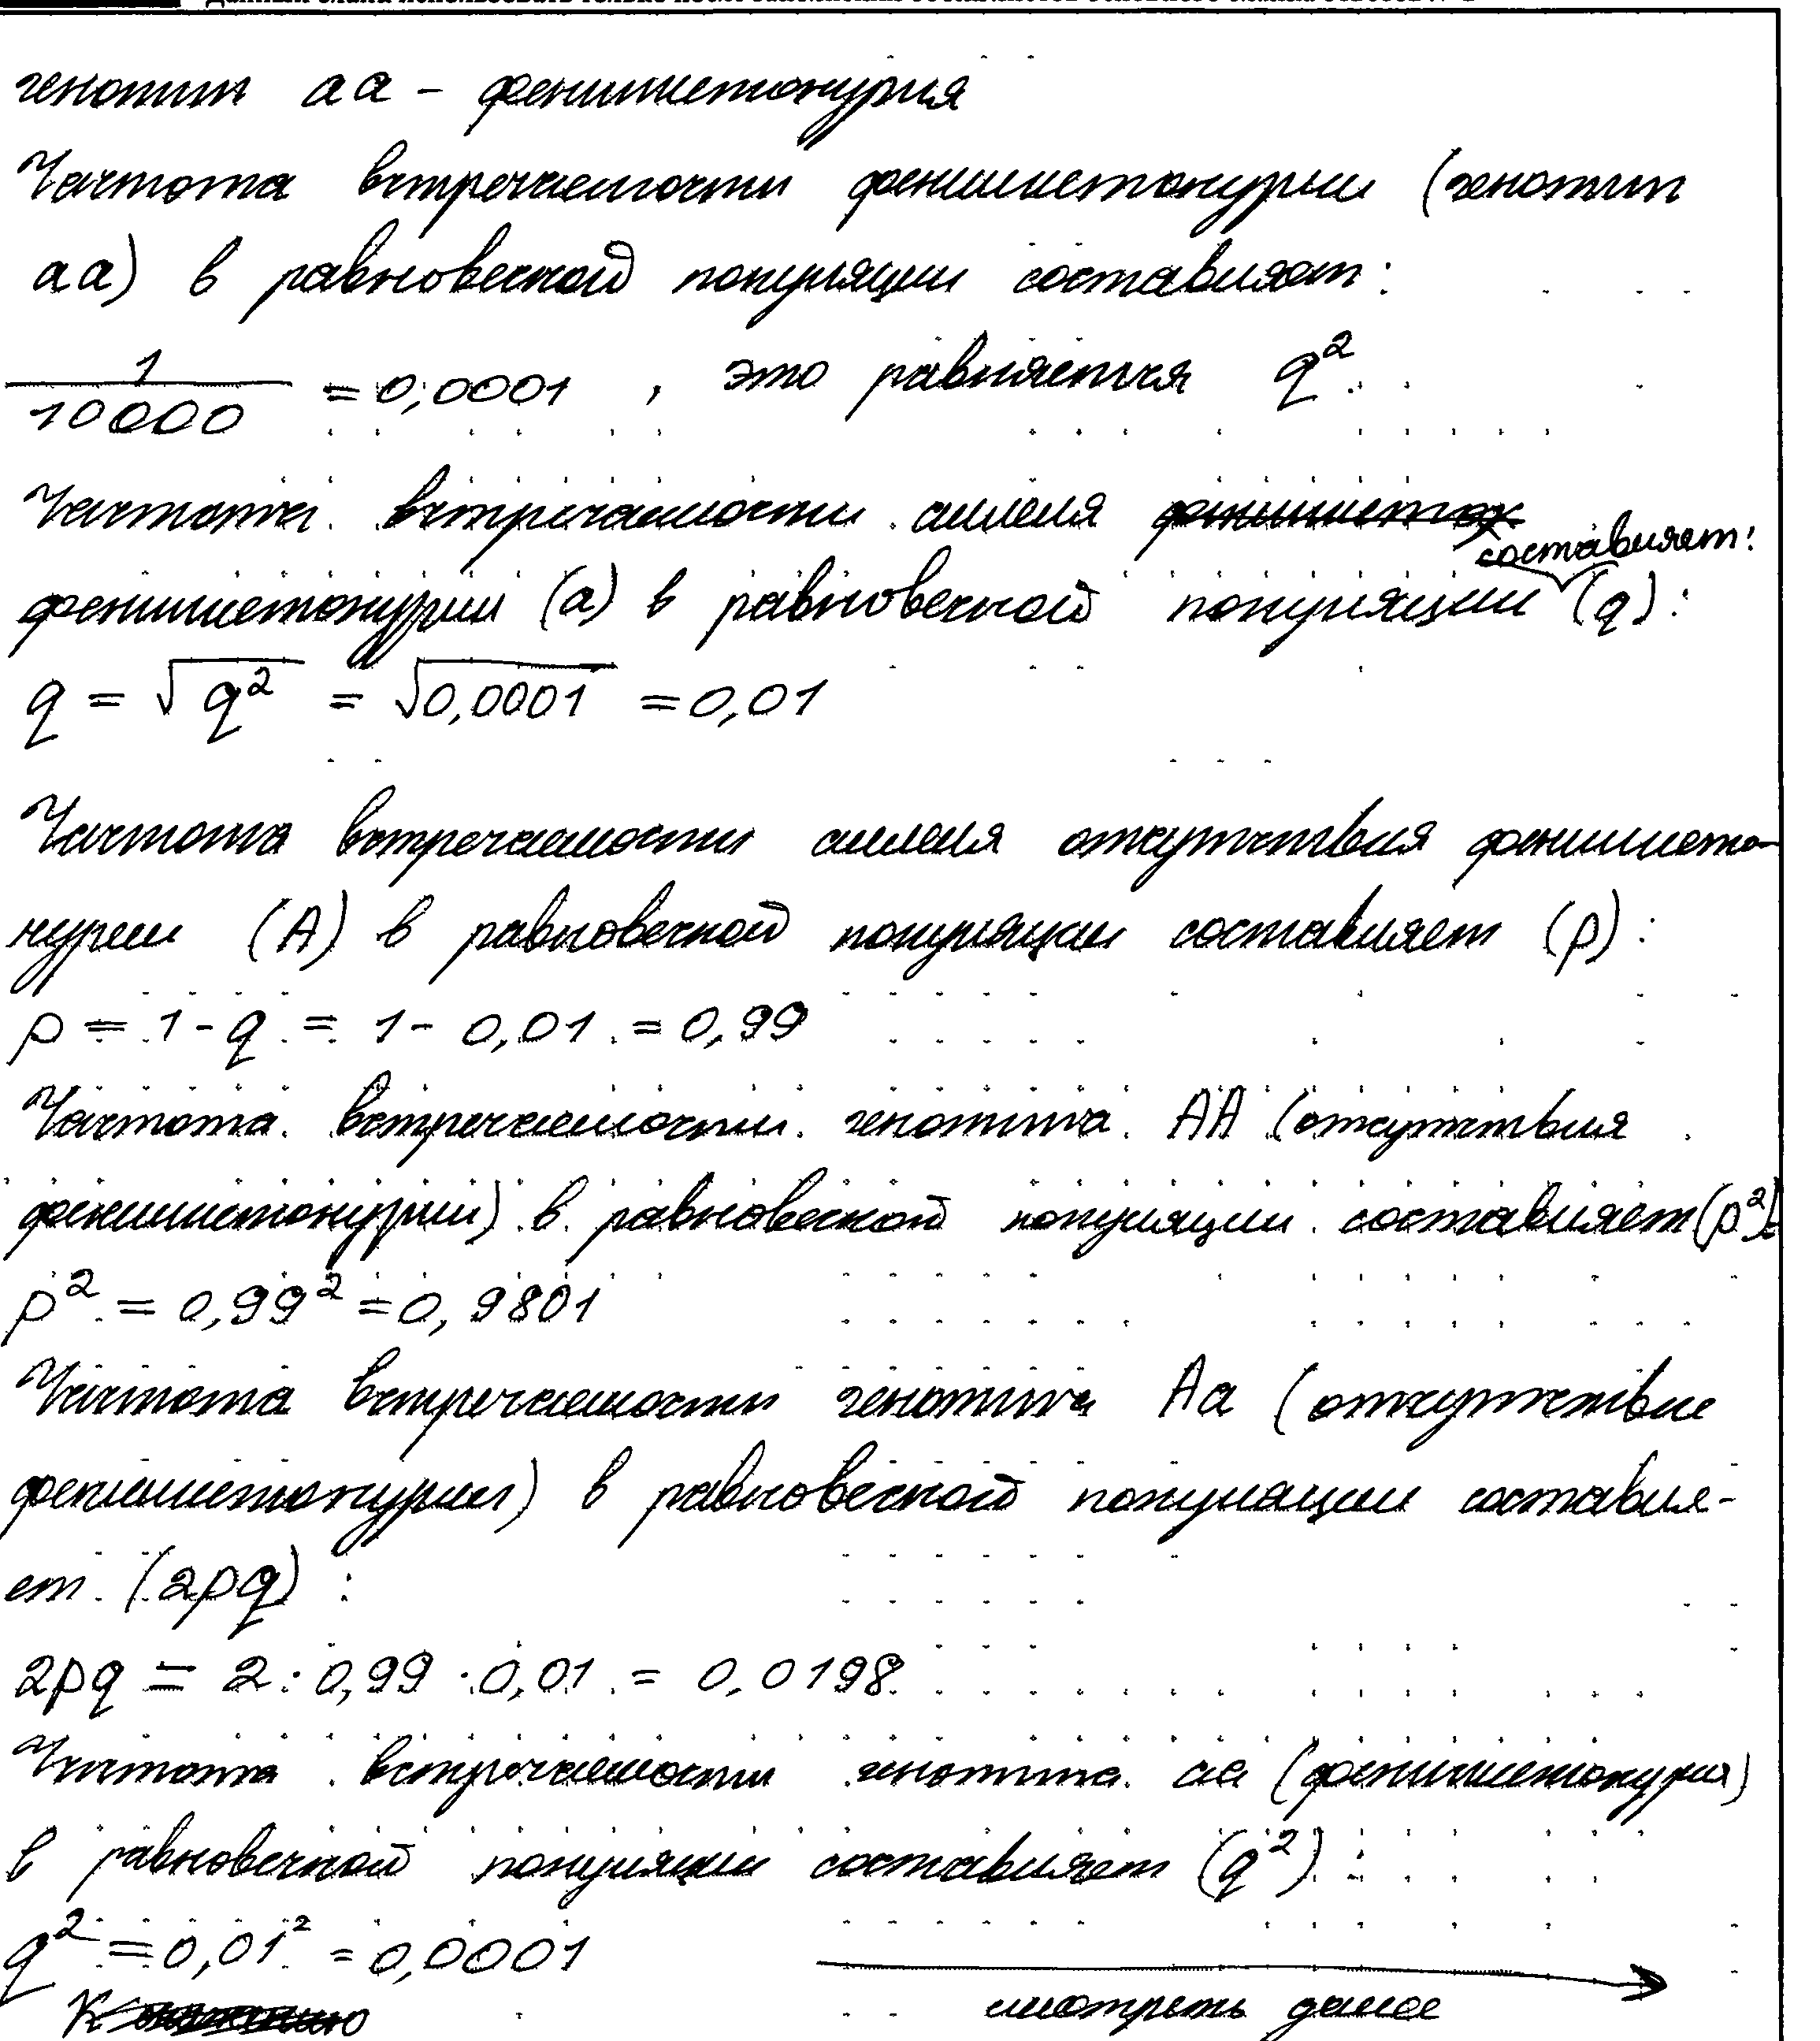 генотип аа – фенилкетонурия
Частота встречаемости фенилкетонурии (генотип
аа) в равновесной популяции составляет:
1/10000 = 0,0001 , это равняется q².
Частота встречаемости аллеля фенилкетон
составляет:
фенилкетонурии (а) в равновесной популяции (q):
q = √q² = √0,0001 = 0,01
Частота встречаемости аллеля отсутствия фенилкето-
нурии (А) в равновесной популяции составляет (p):
p = 1 - q = 1 - 0,01 = 0,99
Частота встречаемости генотипа АА (отсутствия
фенилкетонурии) в равновесной популяции составляет (p²):
p² = 0,99² = 0,9801
Частота встречаемости генотипа Аа (отсутствие
фенилкетонурии) в равновесной популяции составля-
ет (2pq) :
2pq = 2 · 0,99 · 0,01 = 0,0198
Частота встречаемости генотипа аа (фенилкетонурия)
в равновесной популяции составляет (q²) :
q² = 0,01² = 0,0001
смотреть далее